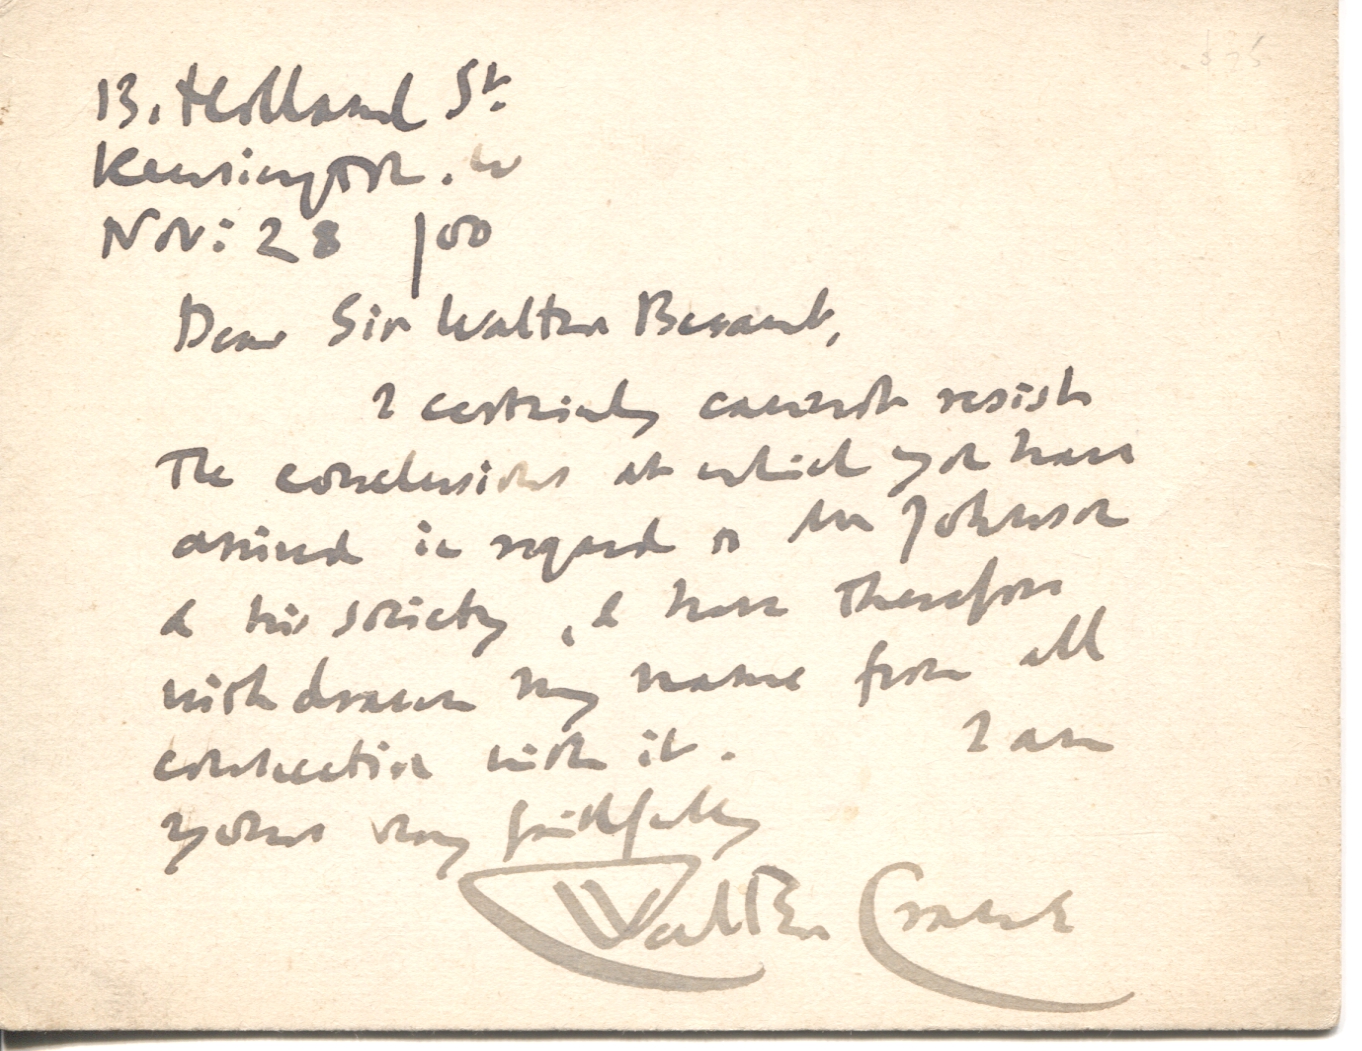 13. Holland St.
Kensington. W
Nov: 28 /00
Dear Sir Walter Besant,
I certainly cannot resist
The conclusions at which you have
arrived in regard to Mr Johnson
& his society, & have therefore
withdrawn my name from all
connection with it. I am
yours very faithfully
Walter Crane